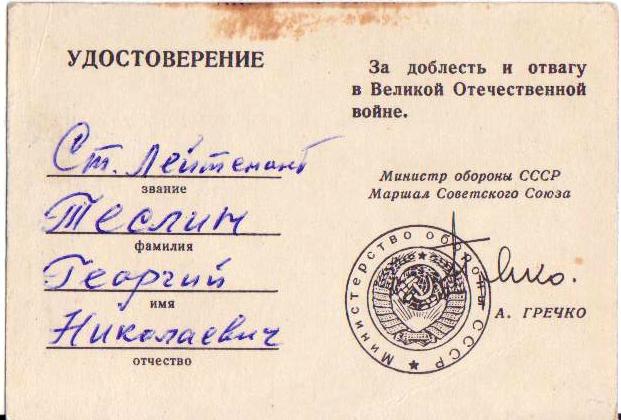 УДОСТОВЕРЕНИЕ
Ст. Лейтенант
звание
Теслин
фамилия
Георгий
имя
Николаевич
отчество
За доблесть и отвагу
в Великой Отечественной
войне.
Министр обороны СССР
Маршал Советского Союза
Министерство обороны СССР
А. ГРЕЧКО